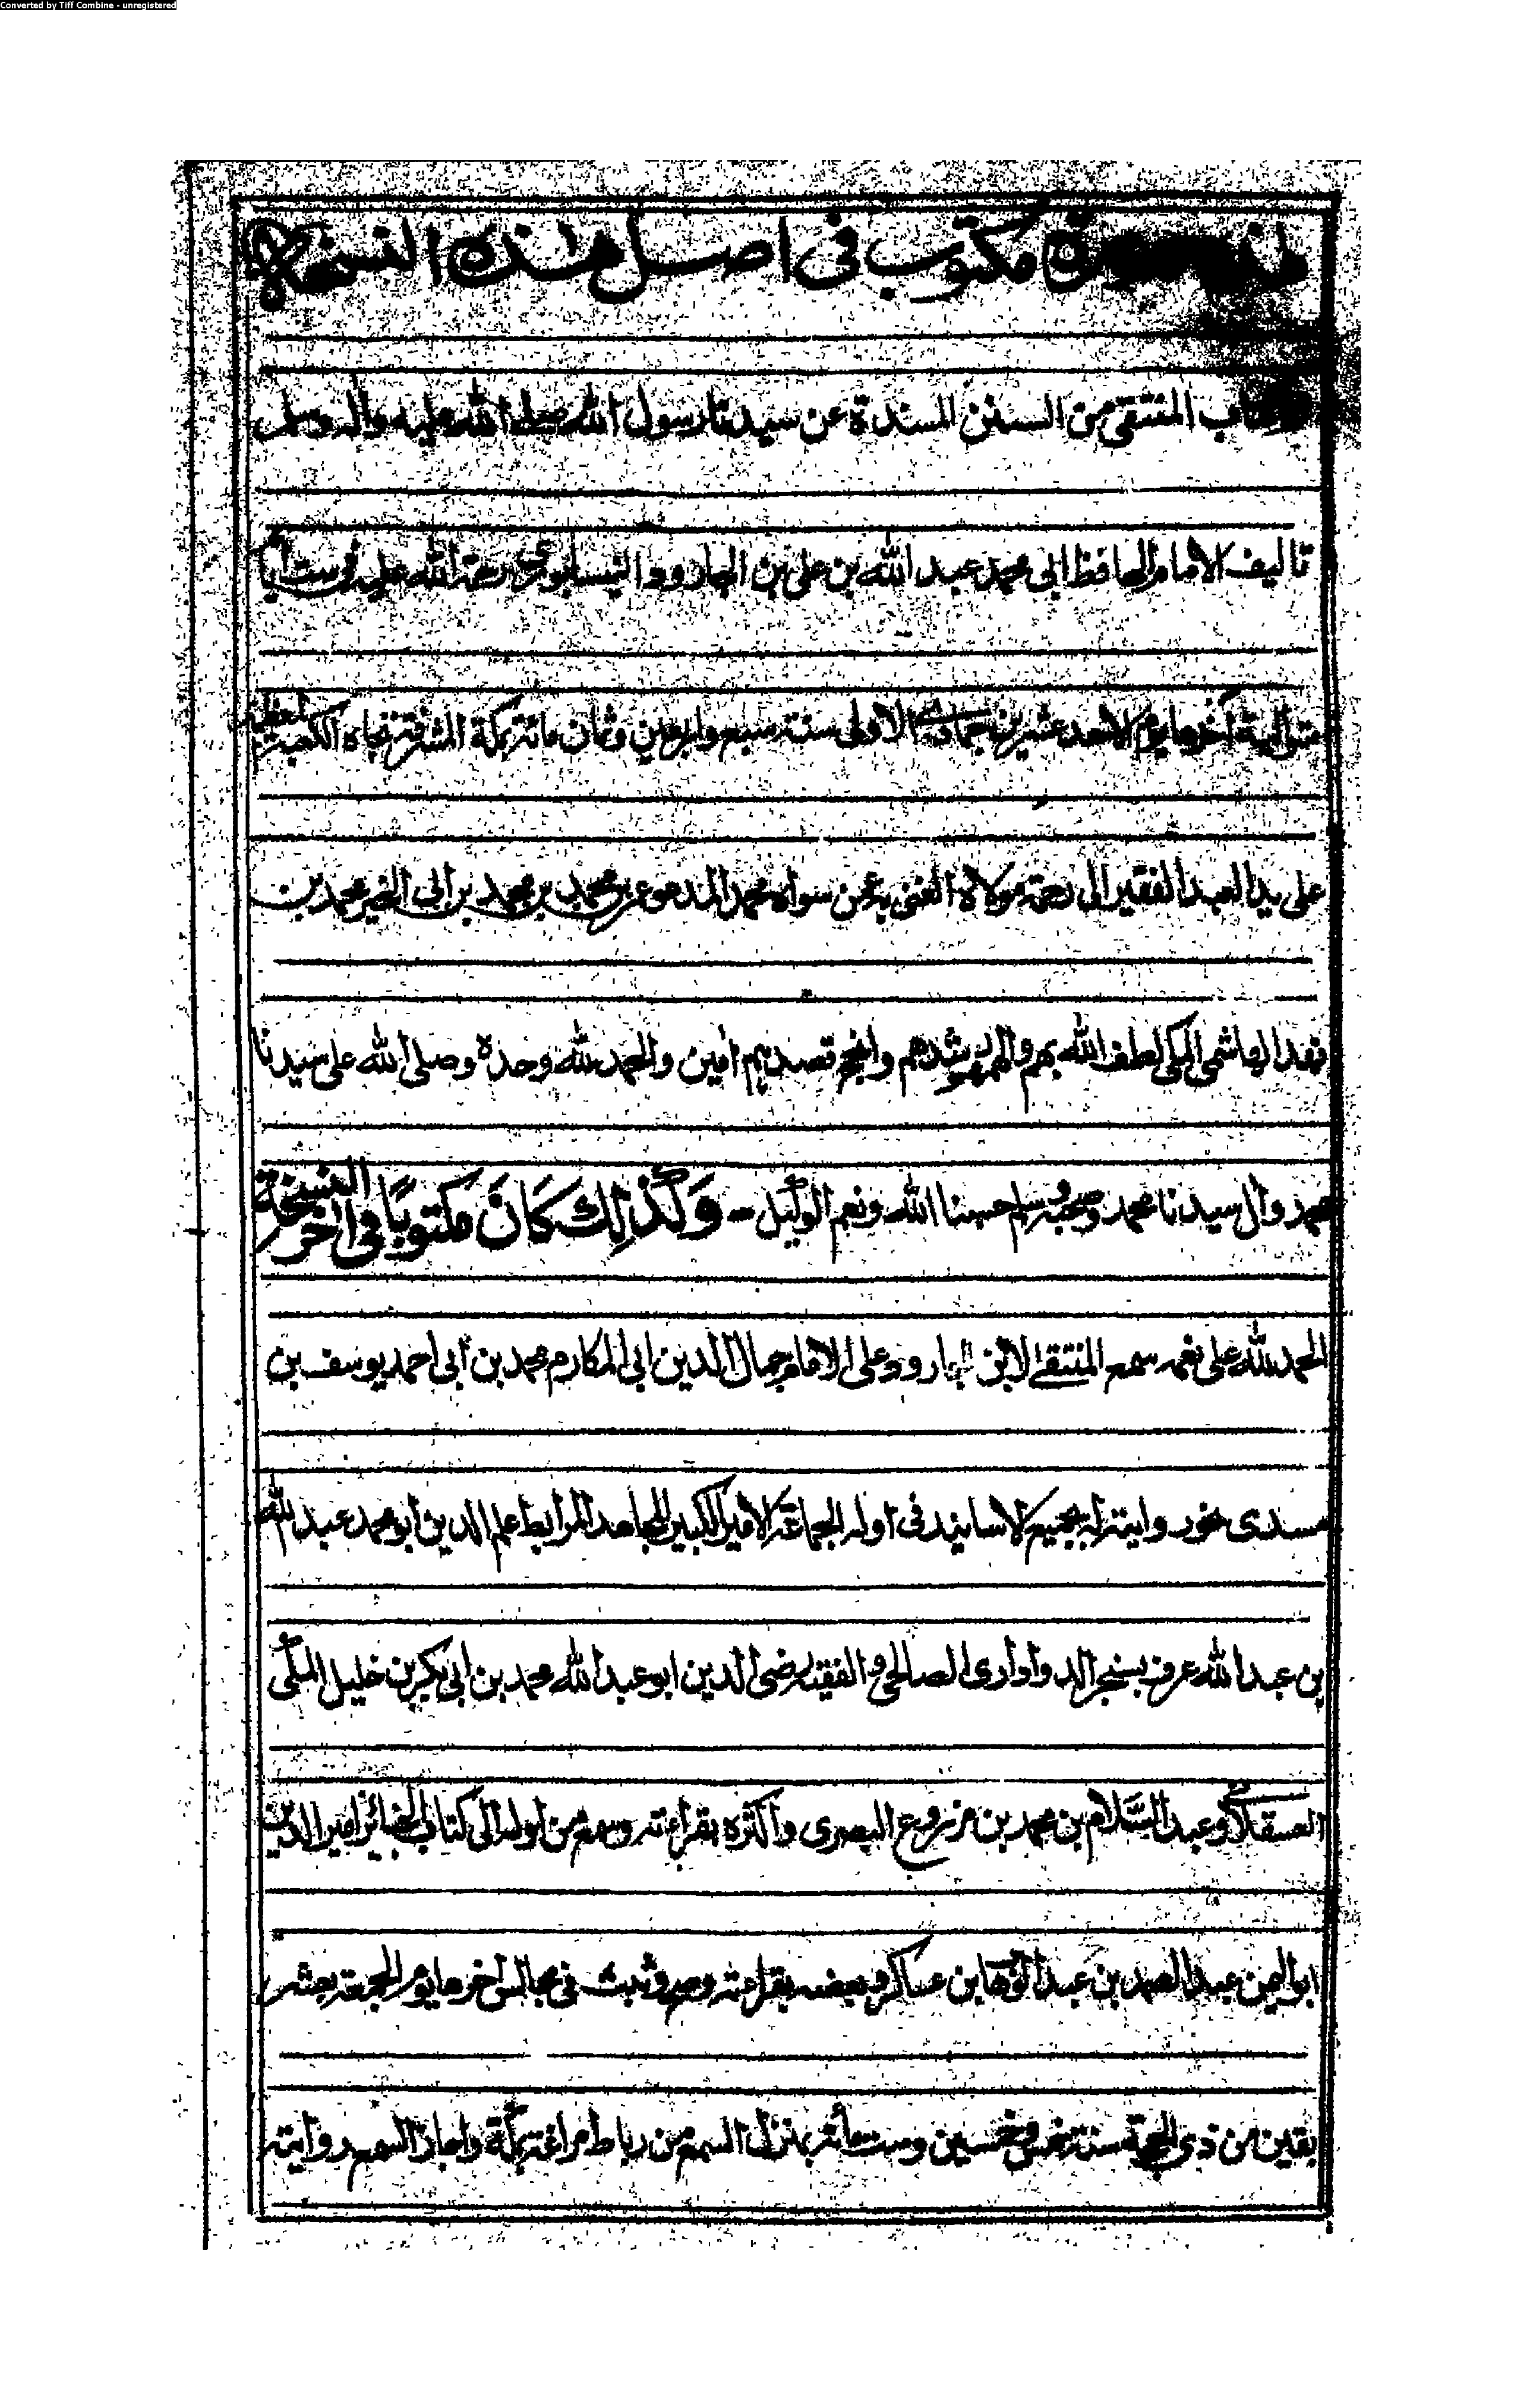 Converted by Tiff Combine - unregistered
مكتوب فى اصل هذه النسخة
كتاب المنتقى من السنن المسندة عن سيدنا رسول الله صلى الله عليه واله وسلم
تاليف الامام الحافظ ابى محمد عبد الله بن على بن الجارود النيسابورى رحمة الله عليه
متوالية اخرها يوم الاحد عشرين جمادى الاولى سنة سبع واربعين وثمان مائة بمكة المشرفة تجاه الكعبة المعظمة
على يد العبد الفقير الى رحمة مولاه الغنى به عمن سواه محمد المدعو عمر بن محمد بن محمد بن ابى الخير محمد بن
فهد الهاشمى المكى لطف الله بهم والهمهم رشدهم وانجح قصدهم امين والحمد لله وحده وصلى الله على سيدنا
محمد وال سيدنا محمد وصحبه وسلم حسبنا الله ونعم الوكيل - وَكَذلِكَ كَانَ مكتوبًا فى اخر النسخة
الحمد لله على نعمه سمع المنتقى لابن الجارود على الامام جمال الدين ابى المكارم محمد بن ابى احمد يوسف بن
مسدى بجميع الاسانيد فى اوله الجماعة الامير الكبير المجاهد المرابط علم الدين ابو محمد عبد الله
بن عبد الله عرف بسنجر الدوادارى الصالحى والفقيه رضى الدين ابو عبد الله محمد بن ابى بكر بن خليل المكى
العسقلانى وعبد السَّلام بن محمد بن مزروع البصرى واكثره بقراءته وسمع من اوله الى كتاب الجنائز امين الدين
ابو اليمن عبد الصمد بن عبد الوهاب بن عساكر وبعضه بقراءته وصح وثبت فى مجالس اخرها يوم الجمعة لعشر
بقين من ذى الحجة سنة خمس وخمسين وست مائة بمنزل السمع من رباط مراغة بمكة واجاز السمع روايته